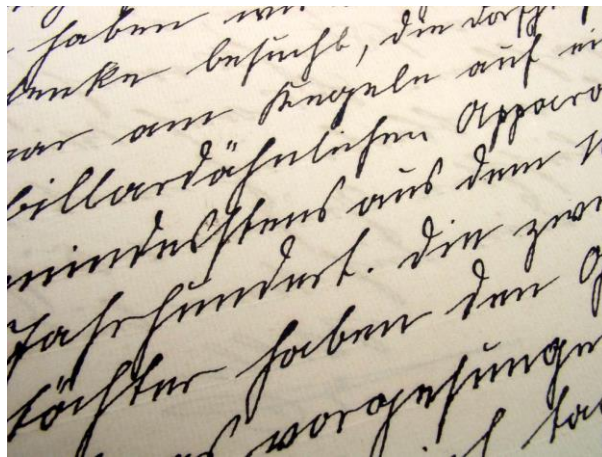 haben wir
besucht, die Dorfs
war am Kegeln auf ei
billardähnlichen Appara
mindestens aus dem
Jahrhundert. Die zwei
töchter haben den
vorgesunge